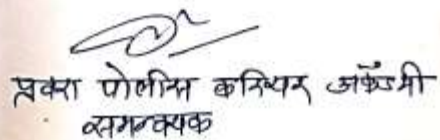 एक्का पोलीस करियर अकॅडमी
समन्वयक